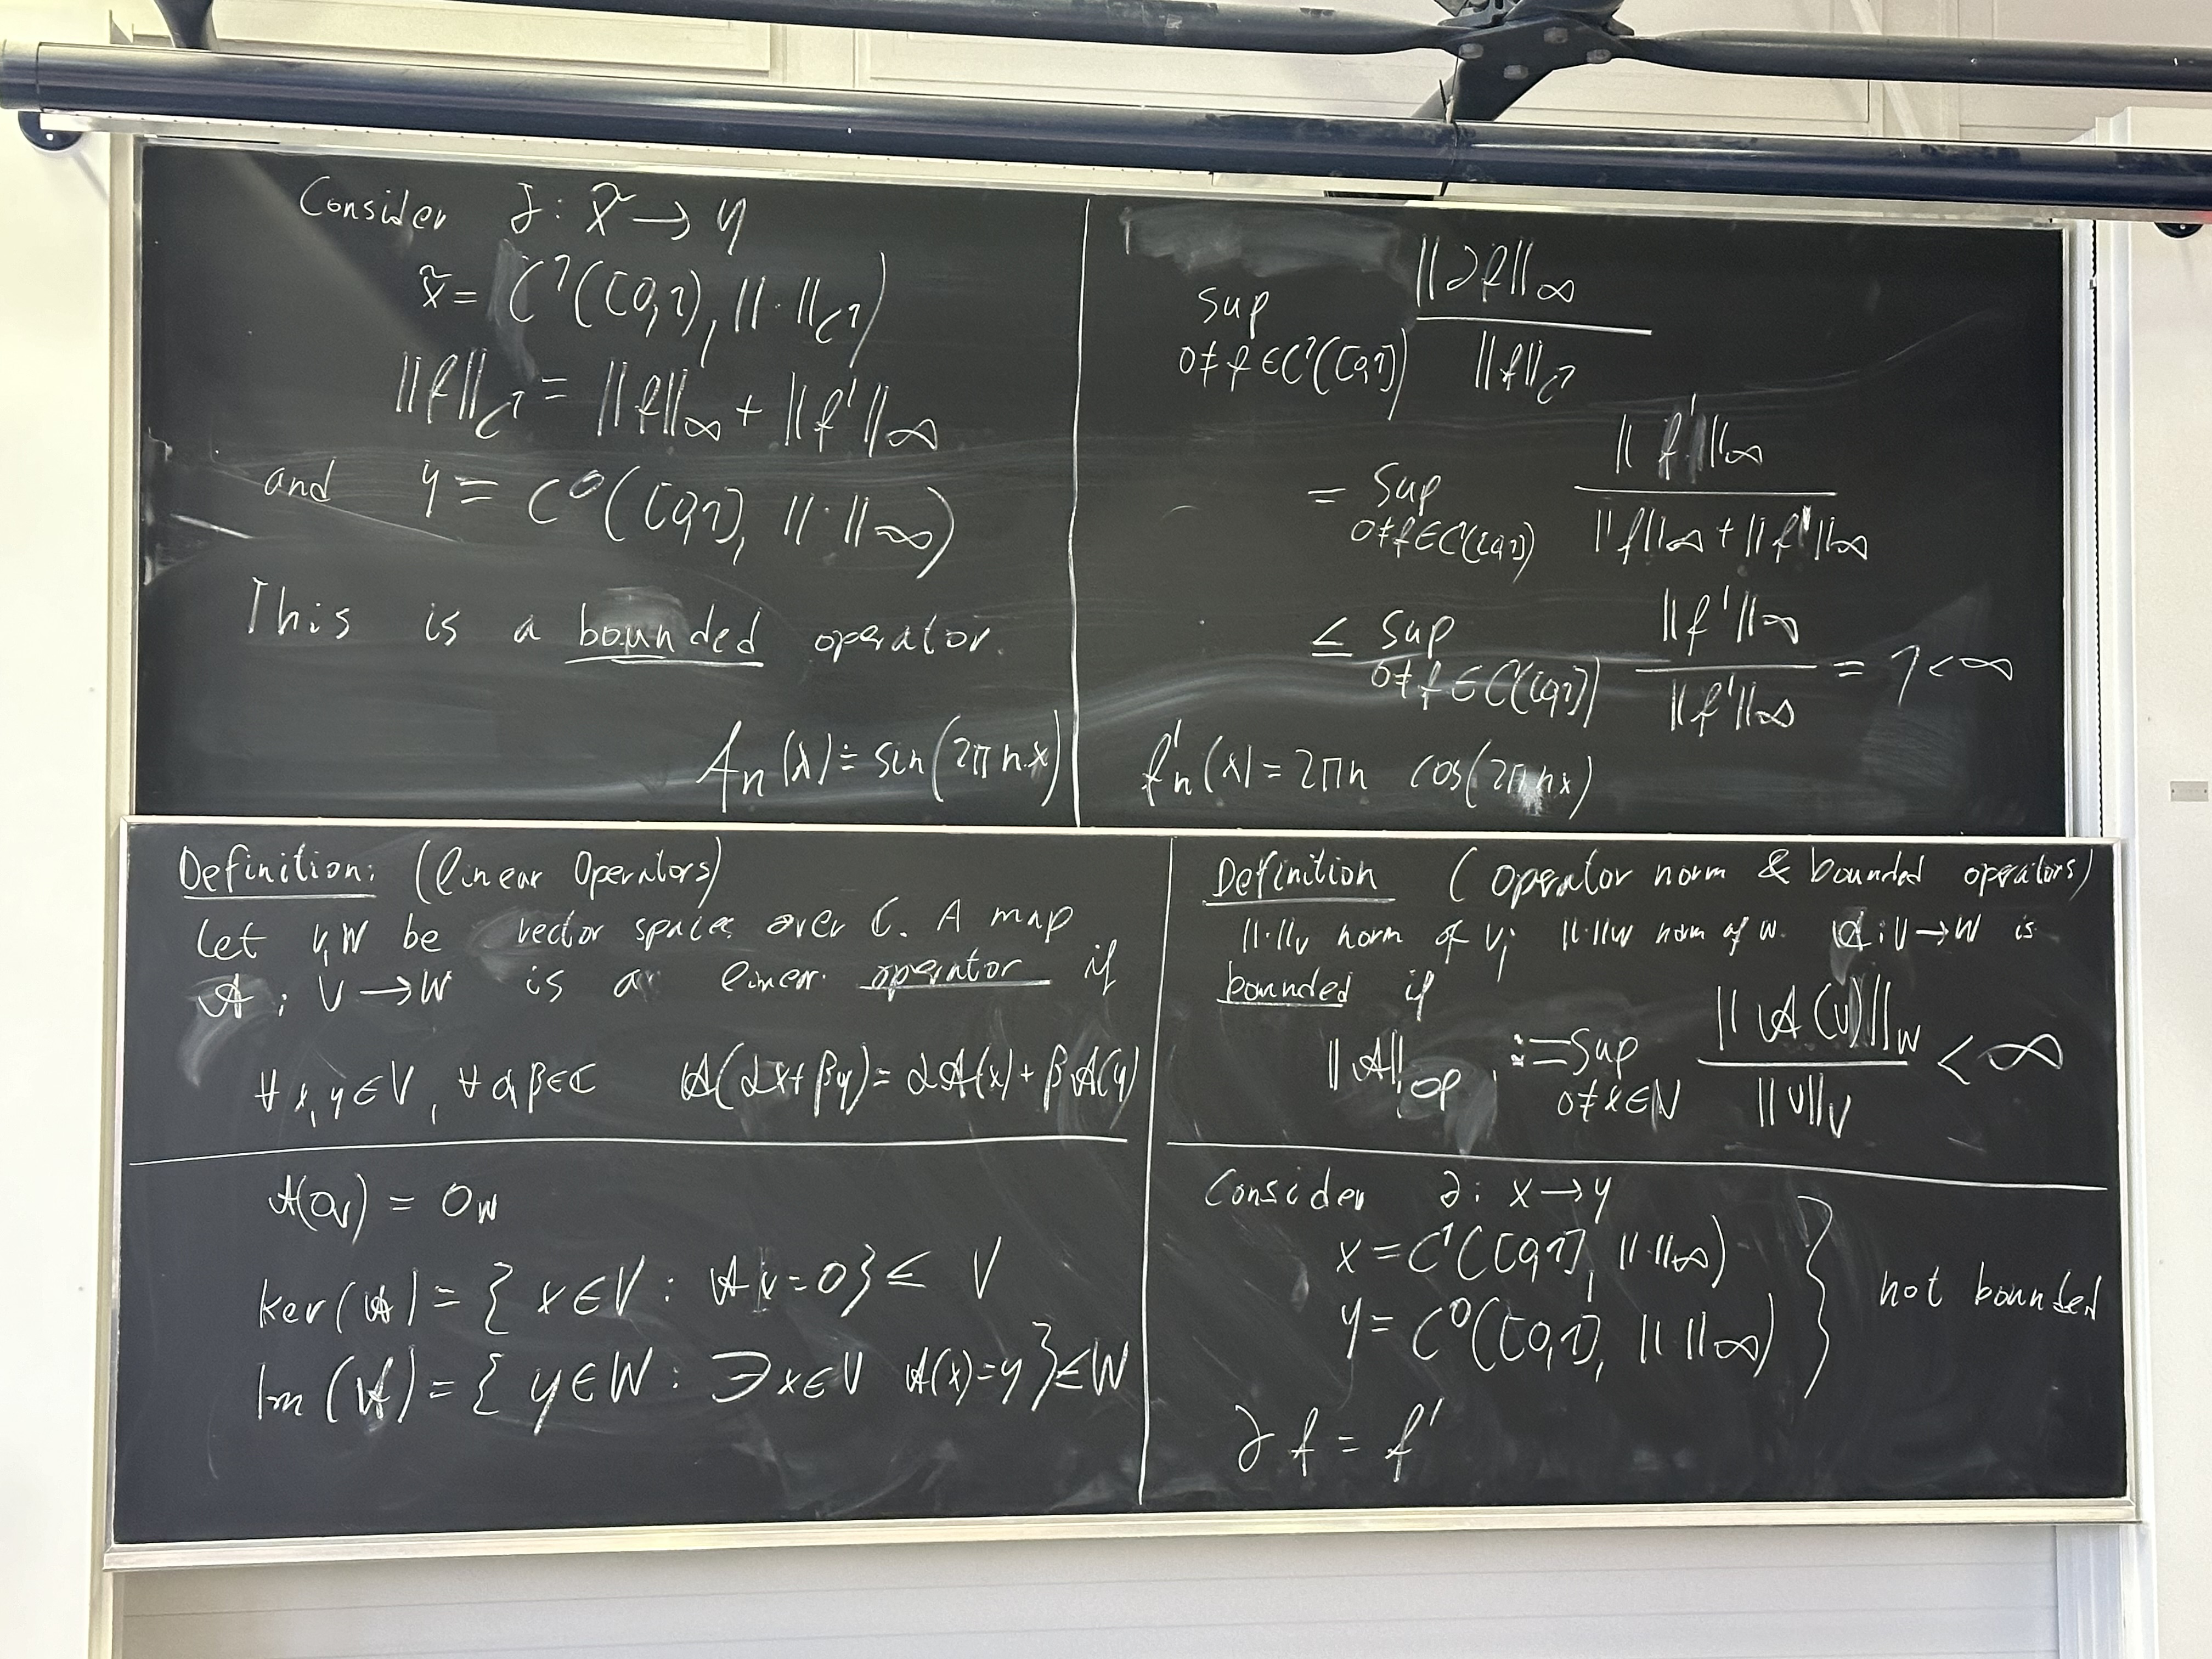 Consider ∂: X̃ → Y
X̃ = C¹([0,1), ||·||_C¹)
||f||_C¹ = ||f||_∞ + ||f'||_∞
and Y = C⁰([0,1], ||·||_∞)
This is a bounded operator.
f_n(x) := sin(2πn·x)
sup_{0≠f∈C¹([0,1])} ||∂f||_∞ / ||f||_C¹
= sup_{0≠f∈C¹([0,1])} ||f'||_∞ / (||f||_∞ + ||f'||_∞)
≤ sup_{0≠f∈C¹([0,1])} ||f'||_∞ / ||f'||_∞ = 1 < ∞
f'_n(x) = 2πn cos(2πnx)
Definition: (linear Operators)
Let V,W be vector spaces over C. A map
A : V → W is a linear operator if
∀ x, y ∈ V, ∀ α,β ∈ C A(αx + βy) = αA(x) + βA(y)
A(0_V) = 0_W
ker(A) = { x ∈ V : Ax = 0 } ≤ V
Im(A) = { y ∈ W : ∃ x ∈ V A(x) = y } ≤ W
Definition (operator norm & bounded operators)
||·||_V norm of V; ||·||_W norm of W. A : V → W is
bounded if
||A||_op := sup_{0≠x∈V} ||A(v)||_W / ||v||_V < ∞
Consider ∂: X → Y
X = C¹([0,1], ||·||_∞)
Y = C⁰([0,1], ||·||_∞)
not bounded
∂f = f'